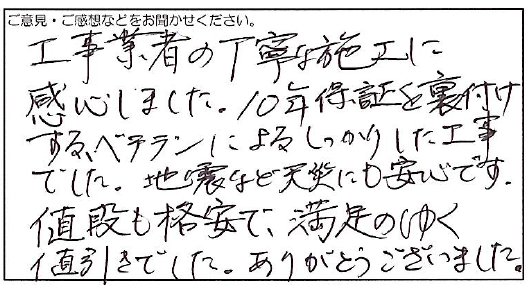 ご意見・ご感想などをお聞かせください。
工事業者の丁寧な施工に
感心しました。10年保証を裏付け
する、ベテランによるしっかりした工事
でした。地震など天災にも安心です。
値段も格安で、満足のゆく
値引きでした。ありがとうございました。